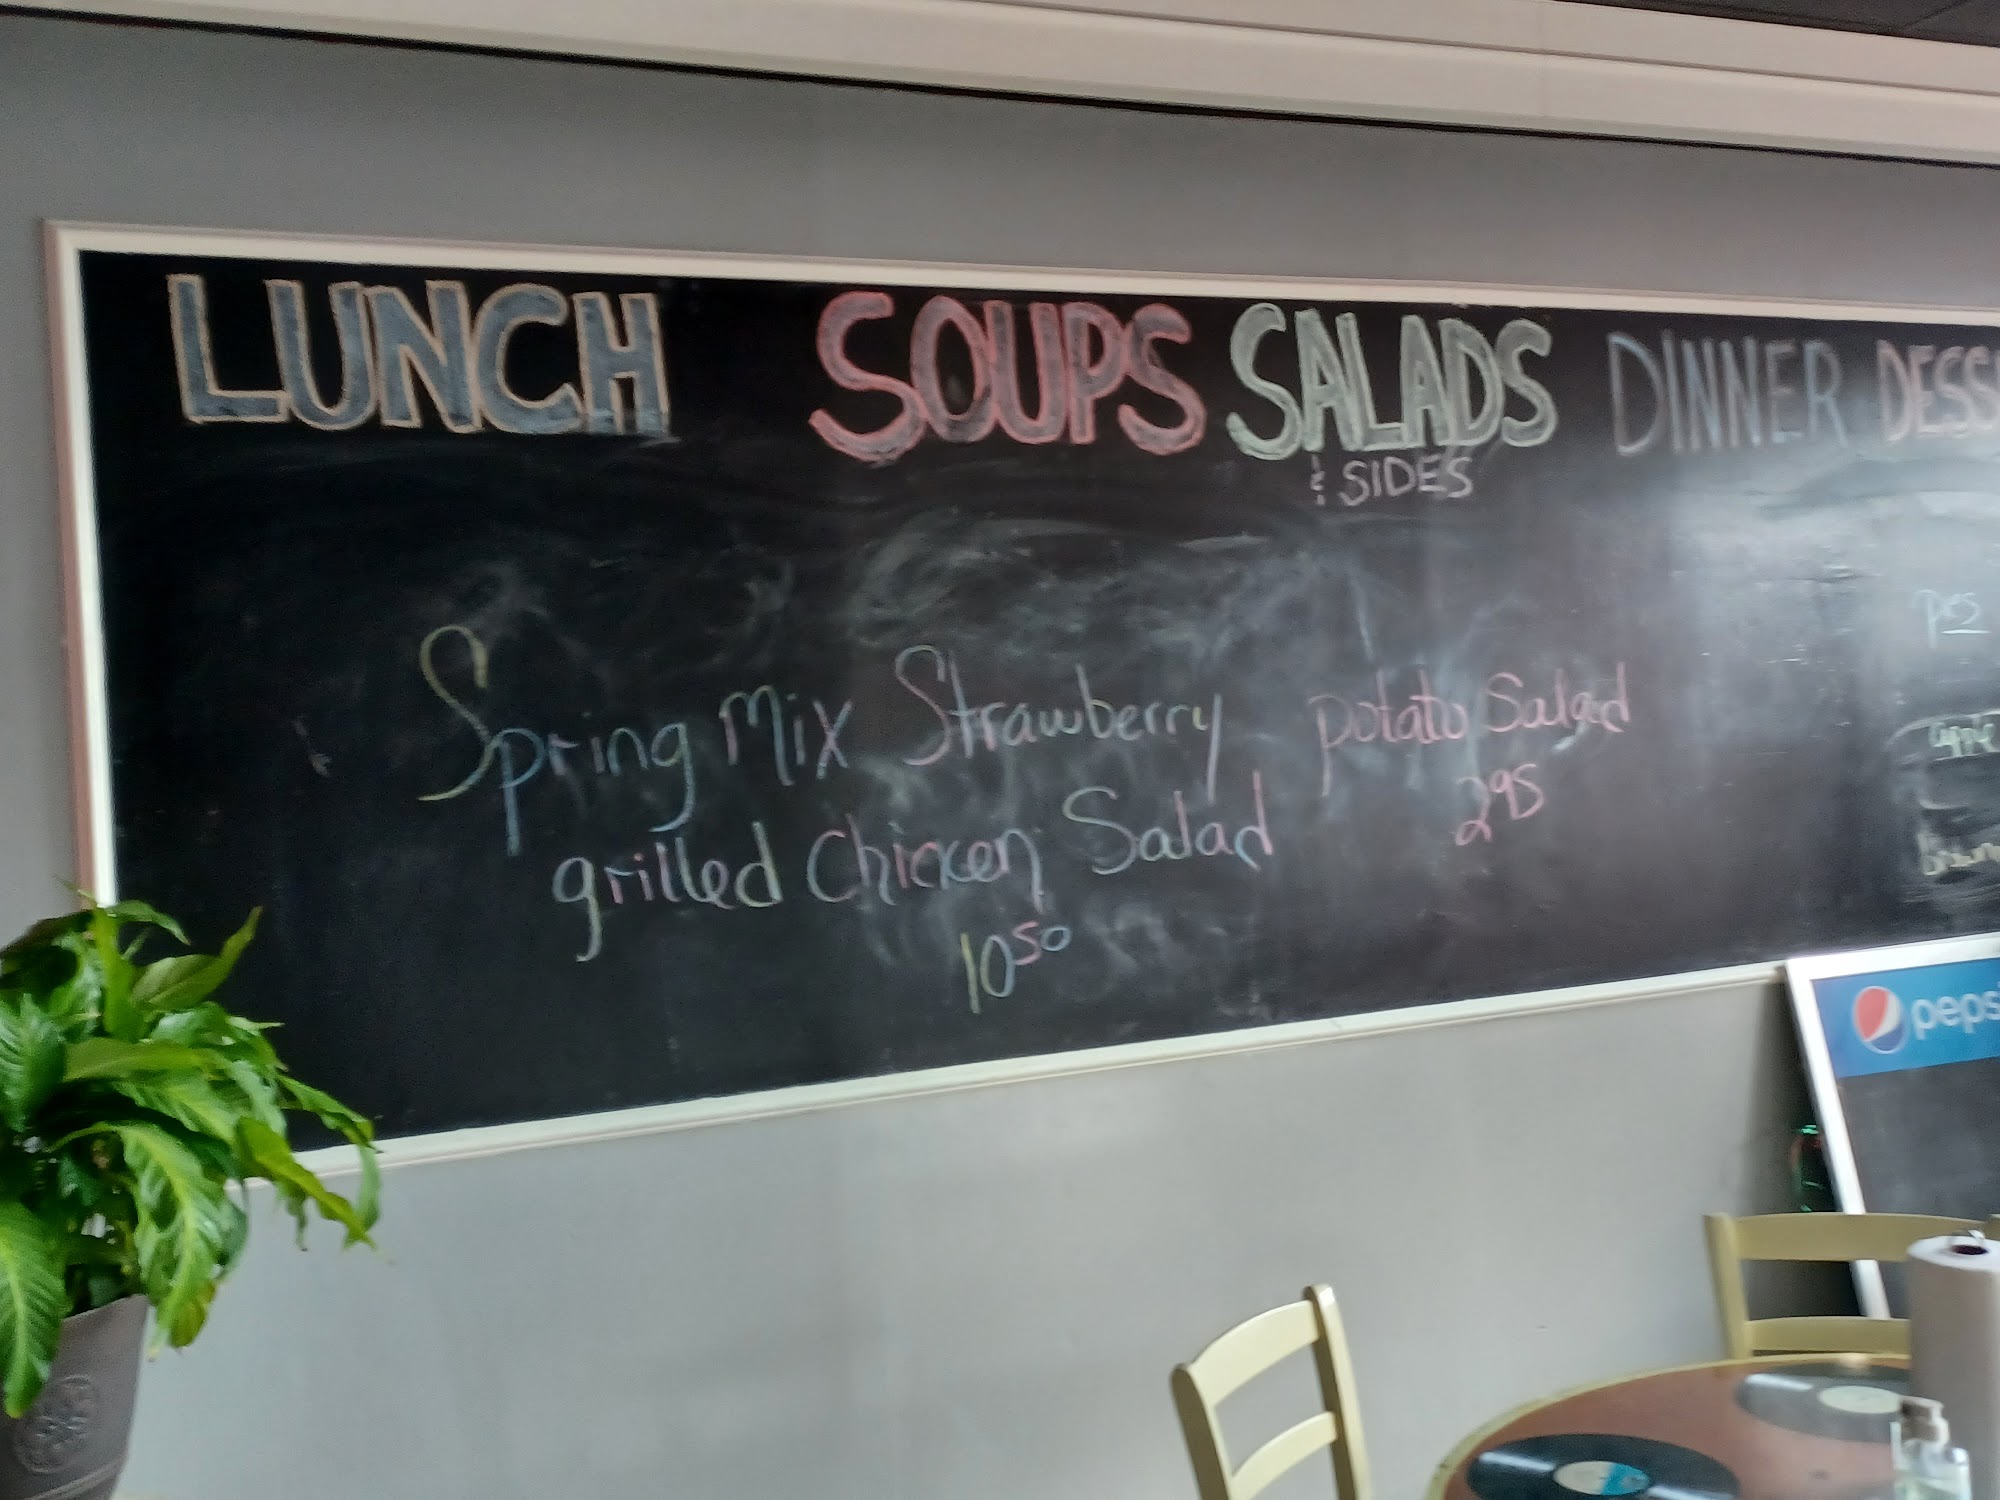 LUNCH SOUPS SALADS DINNER DESS
& SIDES
Spring Mix Strawberry
grilled Chicken Salad
10 50
potato Salad
2 95
pes
pepsi